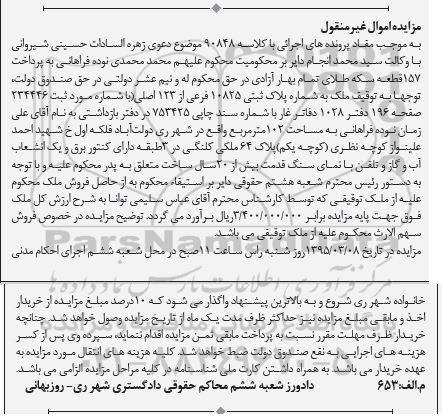 مزایده اموال غیرمنقول
به موجب مفاد پرونده های اجرائی با کلاسه ۹۰۸۴۸ موضوع دعوی زهره السادات حسینی شیروانی
با وکالت سید محمد انجام دایر بر محکومیت محکوم علیهم محمد محمدی نوده فراهانی به پرداخت
۱۵۷قطعه سکه طلای تمام بهار آزادی در حق محکوم له و نیم عشر دولتی در حق صندوق دولت،
توجها به توقیف ملک به شماره پلاک ثبتی ۱۰۸۲۵ فرعی از ۱۲۳ اصلی(با شماره مورد ثبت ۲۳۴۴۴۶
صفحه ۱۹۶ دفتر ۱۰۲۸ دفاتر غار با شماره سند چاپی ۷۵۳۴۲۵ در دفتر بازداشتی به نام آقای علی
زمان نبوده فراهانی به مساحت ۱۰۲مترمربع واقع در شهر ری دولت آباد فلکه اول خ شهید احمد
علینواز کوچه نظری (کوچه یکم)پلاک ۶۴ ملکی کلنگی در ۲طبقه دارای کنتور برق و یک انشعاب
آب و گاز و تلفن با نمای سنگ قدمت بیش از ۲۰سال ساخت متعلق به پدر محکوم علیه و با توجه
به دستور رئیس محترم شعبه هشتم حقوقی دایر بر استیفاء محکوم به از حاصل فروش ملک محکوم
علیه از ملک توقیفی که توسط کارشناس محترم آقای عباس سلیمی توانا به شرح ارزش کل ملک
فوق جهت پایه مزایده برابر ۳/۴۰۰/۰۰۰/۰۰۰ریال برآورد می گردد. توضیح مزایده در خصوص فروش
سهم الارث محکوم علیه از ملک توقیفی می باشد.
مزایده در تاریخ ۱۳۹۵/۰۳/۰۸روز شنبه راس ساعت ۱۱صبح در محل شعبه ششم اجرای احکام مدنی
خانواده شهر ری شروع و به بالاترین پیشنهاد واگذار می شود که ۱۰درصد مبلغ مزایده از خریدار
اخذ و مابقی مبلغ مزایده نیز حداکثر ظرف مدت یک ماه از تاریخ مزایده وصول خواهد شد. چنانچه
خریدار ظرف مهلت مقرر نسبت به پرداخت مابقی ثمن مزایده اقدام ننماید، سپرده وی پس از کسر
هزینه های اجرایی به نفع صندوق دولت ضبط خواهد شد. کلیه هزینه های انتقال مورد مزایده به
عهده خریدار می باشد. به همراه داشتن کارت ملی شناسنامه در کلیه مراحل مزایده الزامی می باشد.
م.الف:۶۵۳ دادورز شعبه ششم محاکم حقوقی دادگستری شهر ری- روزبهانی